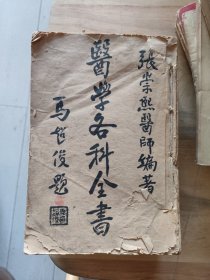 張崇熙醫師編著
醫學各科全書
馬超俊題